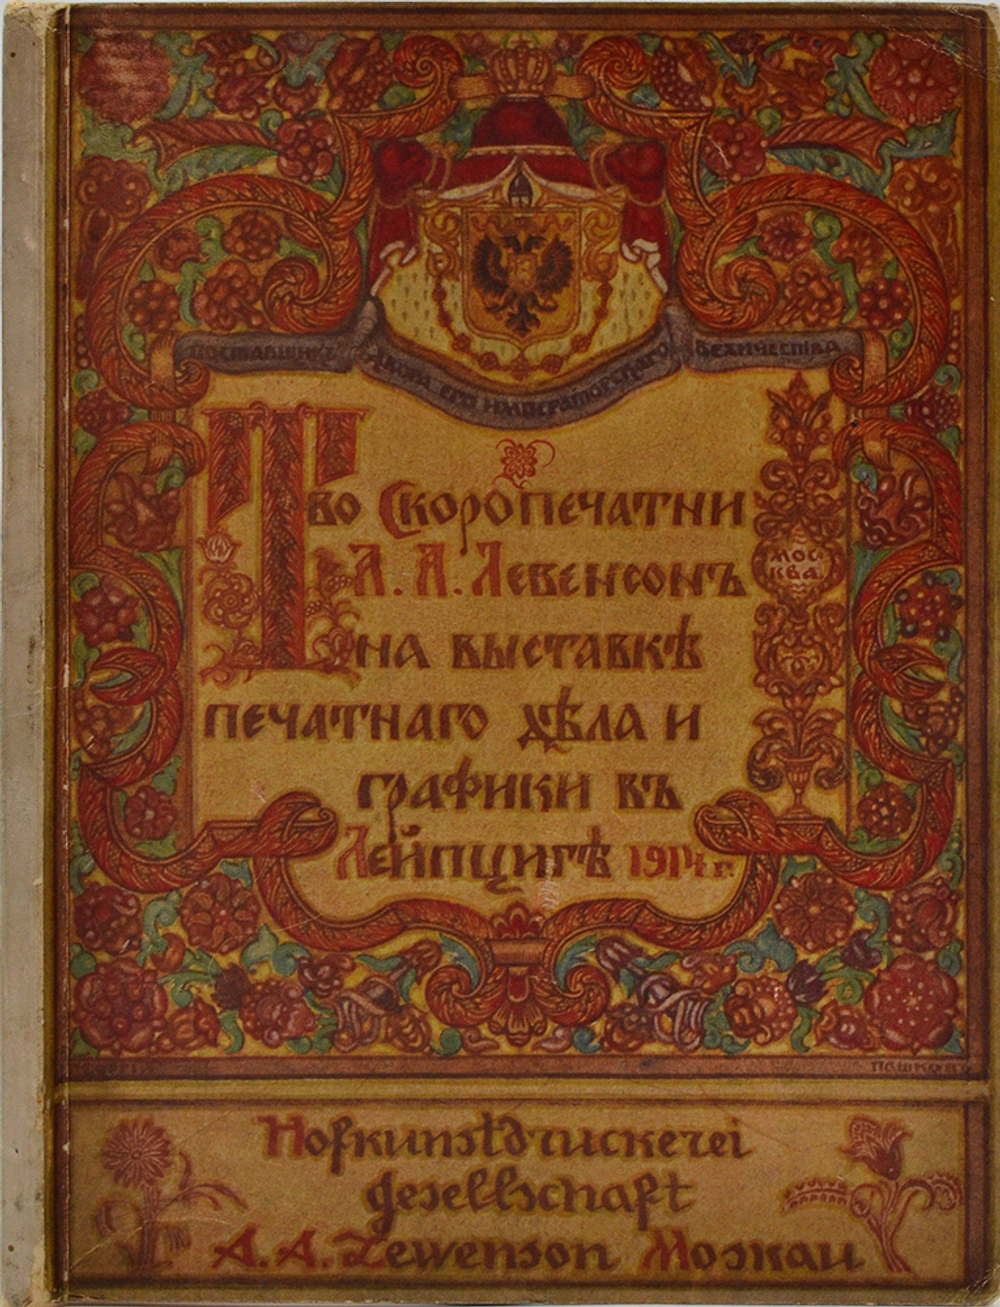 Поставщикъ Двора Его Императорскаго Величества
Тво Скоропечатни
А. А. Левенсонъ
на выставкѣ
печатнаго дѣла и
графики въ
Лейпцигѣ 1914 г.
Мос-
ква.
Пашковъ
Hofkunstdruckerei
gesellschaft
A. A. Lewenson Moskau